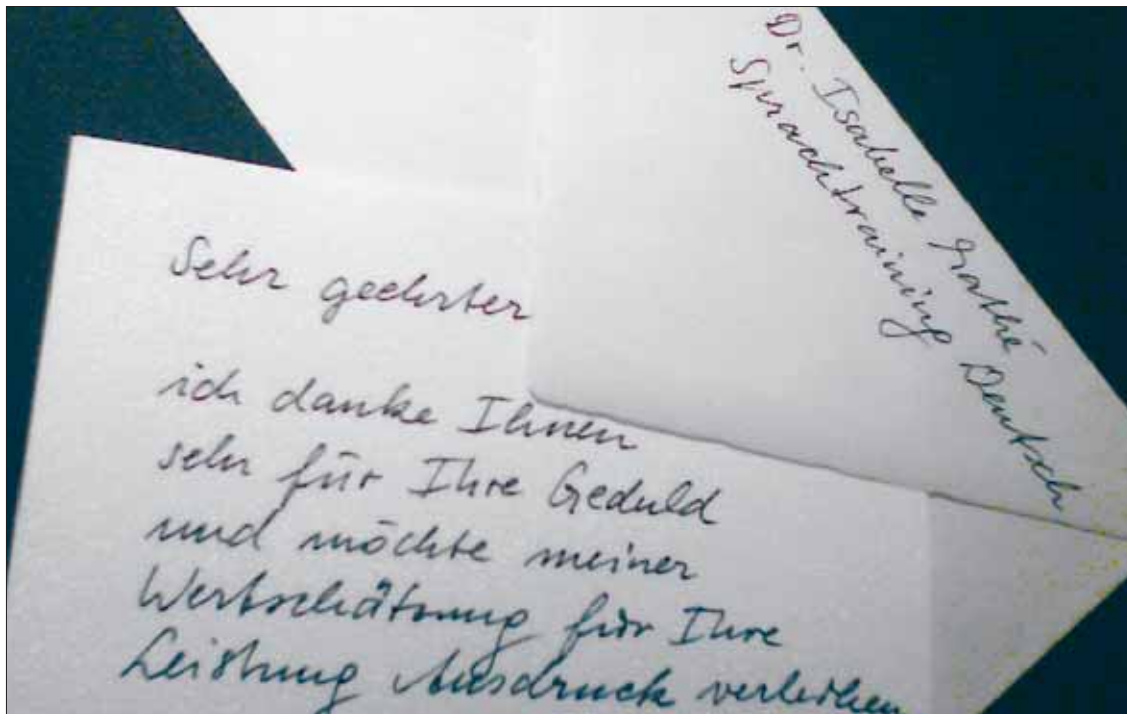 Dr. Isabelle Grathé
Sprachtraining Deutsch
Sehr geehrter
ich danke Ihnen
sehr für Ihre Geduld
und möchte meiner
Wertschätzung für Ihre
Leistung Ausdruck verleihen